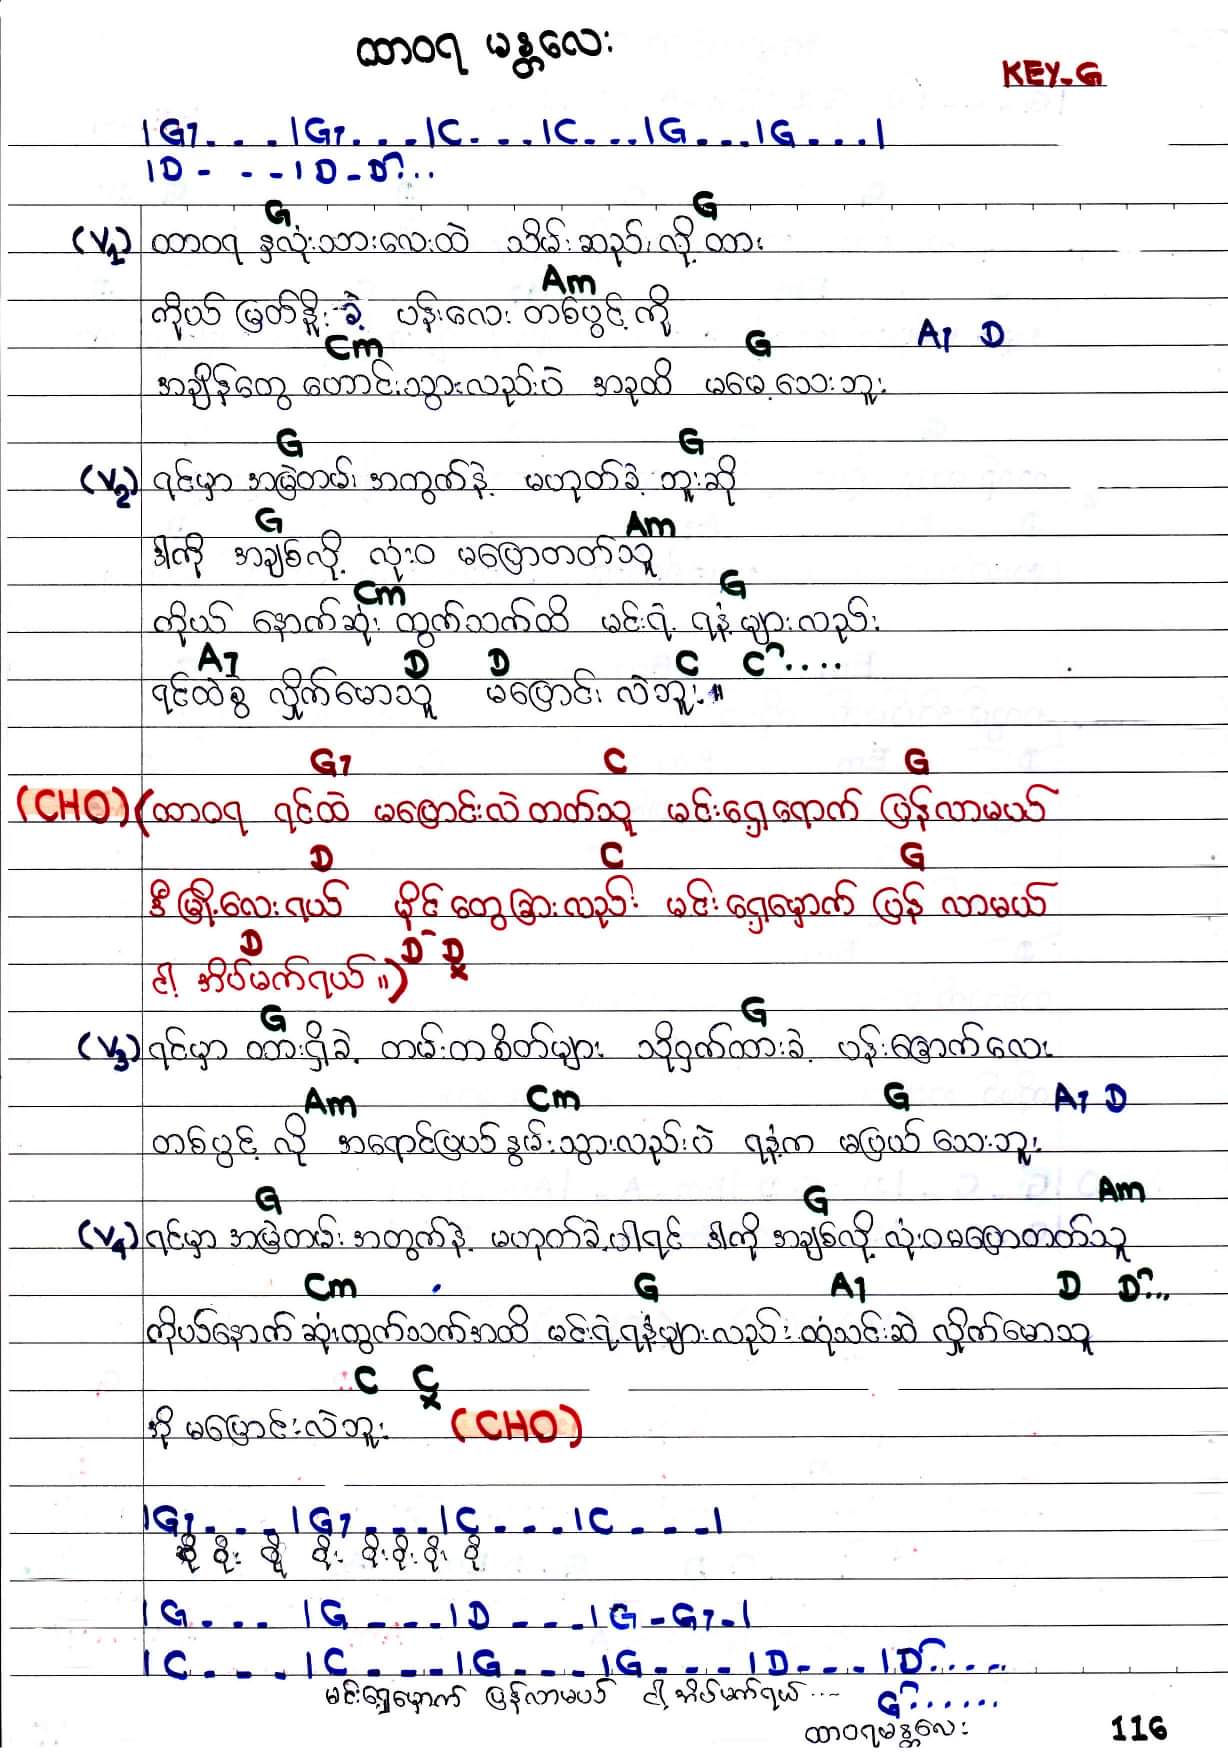 ထာဝရ မန္တလေး
KEY-G
|G7 . . . |G7 . . . |C . . . |C . . . |G . . . |G . . . |
|D - - - |D - D . . .
G G
(V1) ထာဝရ နှလုံးသားလေးထဲ သိမ်းဆည်းလို့ ထား
Am
ကိုယ် မြတ်နိုးခဲ့ ပန်းလေး တစ်ပွင့်ကို
Cm G A7 D
အချိန်တွေ ဟောင်းသွားလည်းပဲ အခုထိ မမေ့သေးဘူး
G G
(V2) ရင်မှာ အမြဲတမ်း အတွက်နဲ့ မဟုတ်ခဲ့ ဘူးဆို
G Am
ဒါကို အချစ်လို့ လုံးဝ မပြောတတ်သူ
Cm G
ကိုယ် နောက်ဆုံး ထွက်သက်ထိ မင်းရဲ့ ရနံ့များလည်း
A7 D D C C . . . .
ရင်ထဲစွဲ လှိုက်မောသူ မပြောင်း လဲဘူး။
G7 C G
(CHO) (ထာဝရ ရင်ထဲ မပြောင်းလဲတတ်သူ မင်းရှေ့ရောက် ပြန်လာမယ်
D C G
ဒီမြို့လေးရယ် မိုင်တွေခြားလည်း မင်းရှေ့မှောက် ပြန် လာမယ်
D D D
ငါ့ အိပ်မက်ရယ်။)
G G
(V3) ရင်မှာ ထားရှိခဲ့ တမ်းတစိတ်များ သိုဝှက်ထားခဲ့ ပန်းခြောက်လေး
Am Cm G A7 D
တစ်ပွင့် လို အရောင်ပြယ်နွမ်းသွားလည်းပဲ ရနံ့က မပြယ်သေးဘူး
G G Am
(V4) ရင်မှာ အမြဲတမ်း အတွက်နဲ့ မဟုတ်ခဲ့ပါရင် ဒါကို အချစ်လို့ လုံးဝမပြောတတ်သူ
Cm G A7 D D . . .
ကိုယ်နောက်ဆုံးထွက်သက်အထိ မင်းရဲ့ရနံ့များလည်း ထုံသင်းဆဲ လှိုက်မောသူ
C C
အို မပြောင်းလဲဘူး (CHO)
|G7 . . . |G7 . . . |C . . . |C . . . |
|G . . . |G . . . |D . . . |G - G7 - |
|C . . . |C . . . |G . . . |G . . . |D . . . |D . . . .
မင်းရှေ့မှောက် ပြန်လာမယ် ငါ့ အိပ်မက်ရယ် ...
G . . . . . .
ထာဝရမန္တလေး
116